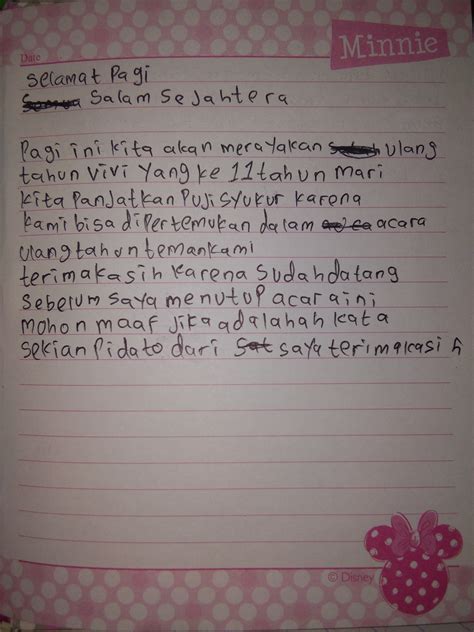 Minnie
Date
selamat Pagi
Semua Salam Sejahtera
Pagi ini kita akan merayakan ulang
tahun vivi Yang ke 11 tahun mari
kita PanJatkan PuJi syukur karena
kami bisa diPertemukan dalam acara
Ulang tahun teman kami
terimakasih karena sudah datang
Sebelum saya menutup acara ini
mohon maaf Jika ada lahah kata
sekian Pidato dari Sat saya terimakasih
© Disney